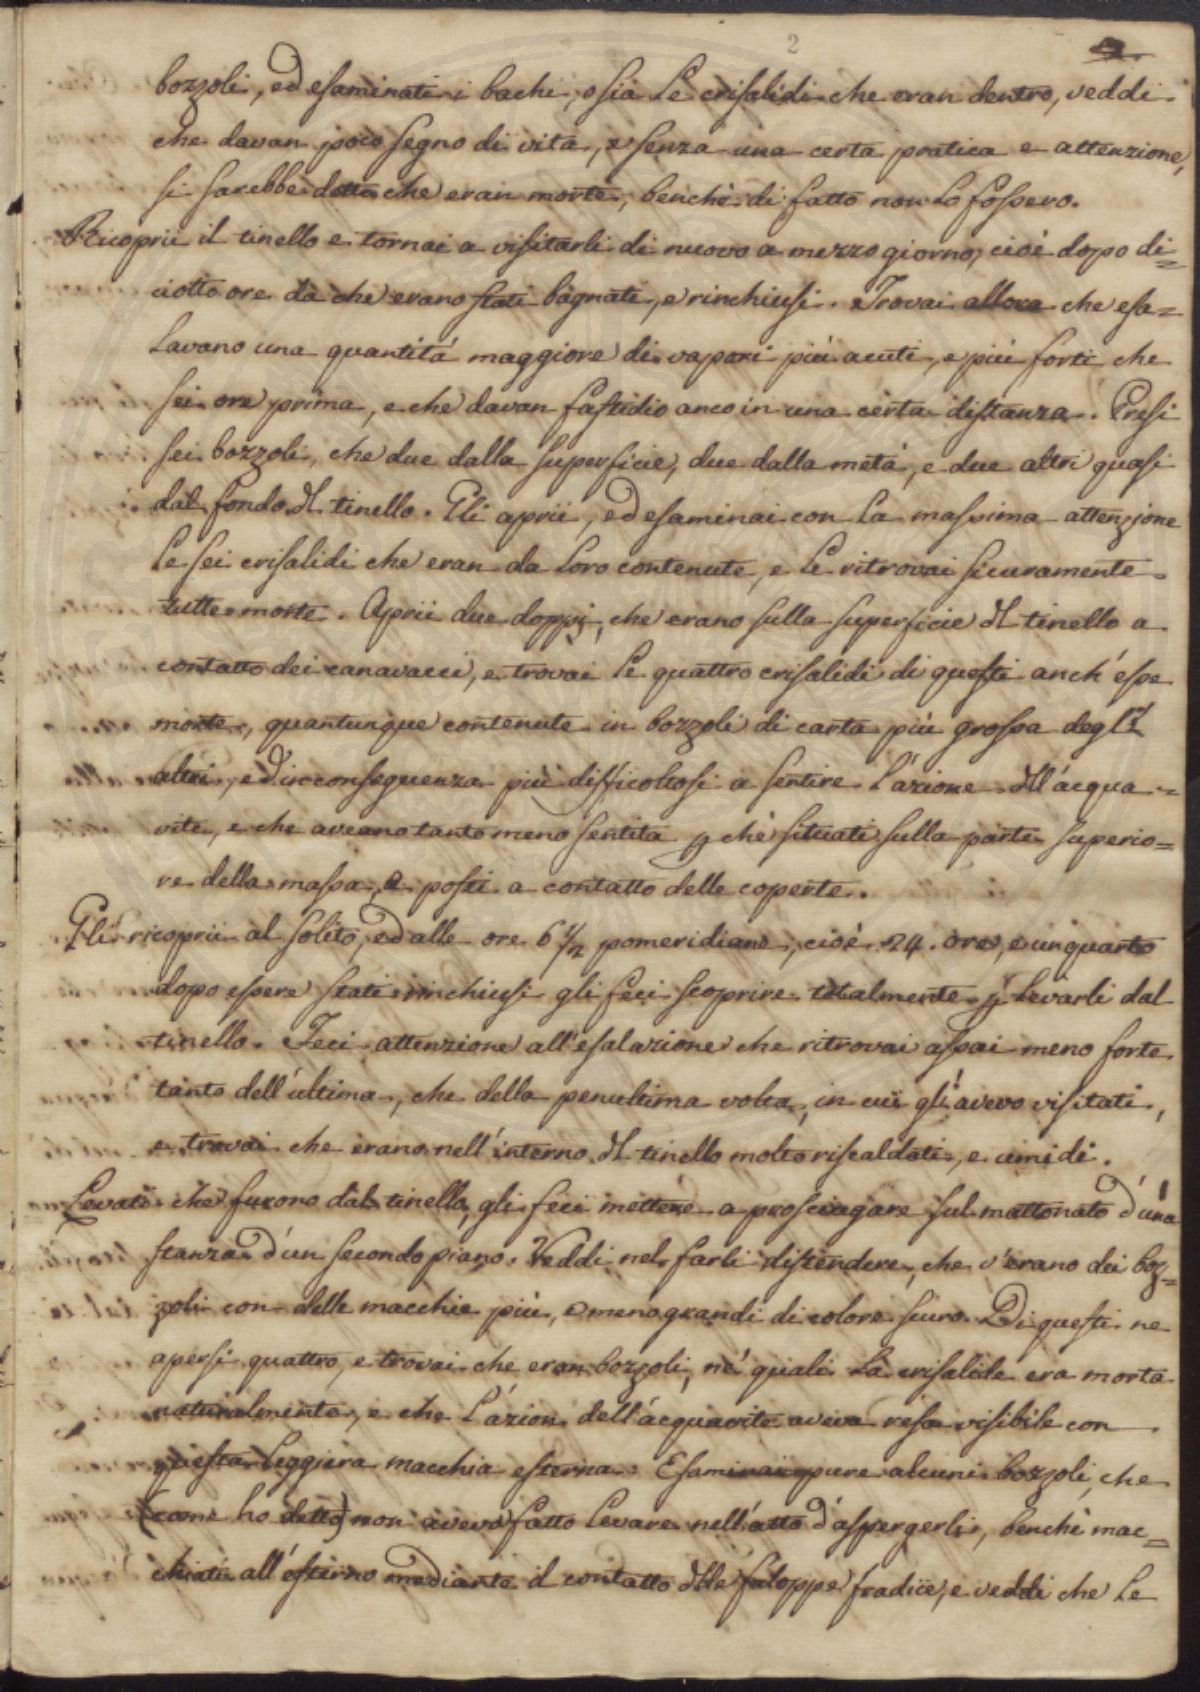 2
bozzoli, ed esaminati i bachi, o sia le crisalidi che eran dentro, veddi
che davan poco segno di vita, e senza una certa pratica e attenzione,
si sarebbe detto che eran morte, benchè di fatto non lo fossero.
Ricoprii il tinello e tornai a visitarli di nuovo a mezzo giorno, cioè dopo di=
ciotto ore da che erano stati bagnati, e rinchiusi. Trovai allora che esa=
lavano una quantitá maggiore di vapori piú acuti, e piú forti che
sei ore prima, e che davan fastidio anco in una certa distanza. Presi
sei bozzoli, che due dalla superficie, due dalla metà, e due altri quasi
dal fondo del tinello. Gli aprii, ed esaminai con la massima attenzione
le sei crisalidi che eran da loro contenute, e le ritrovai sicuramente
tutte morte. Aprii due doppj, che erano sulla superficie del tinello a
contatto dei canavacci, e trovai le quattro crisalidi di questi anch'esse
morte, quantunque contenute in bozzoli di carta più grossa degl'
altri, ed in conseguenza più difficoltosi a sentire l'azione dell'acqua=
vite, e che aveano tanto meno sentita perchè situati sulla parte superio=
re della massa, e posti a contatto delle coperte.
Gli ricoprii al solito, ed alle ore 6 1/2 pomeridiane, cioè 24. ore, e un quarto
dopo essere stati rinchiusi gli feci scoprire totalmente per levarli dal
tinello. Feci attenzione all'esalazione che ritrovai assai meno forte
tanto dell'ultima, che della penultima volta, in cui gli avevo visitati,
e trovai che erano nell'interno del tinello molto riscaldati, e umidi.
Levati che furono dal tinello, gli feci mettere a prosciugare sul mattonato d'una
stanza d'un secondo piano. Veddi nel farli distendere, che v'erano dei boz=
zoli con delle macchie più, o meno grandi di colore scuro. Di questi ne
apersi quattro, e trovai che eran bozzoli, ne' quali la crisalide era morta
naturalmente, e che l'azion dell'acquavite aveva resa visibile con
questa leggiera macchia esterna. Esaminai pure alcuni bozzoli, che
(come ho detto) non avevo fatto levare nell'atto d'aspergerli, benchè mac=
chiati all'esterno mediante il contatto delle faloppe fradicie, e veddi che le